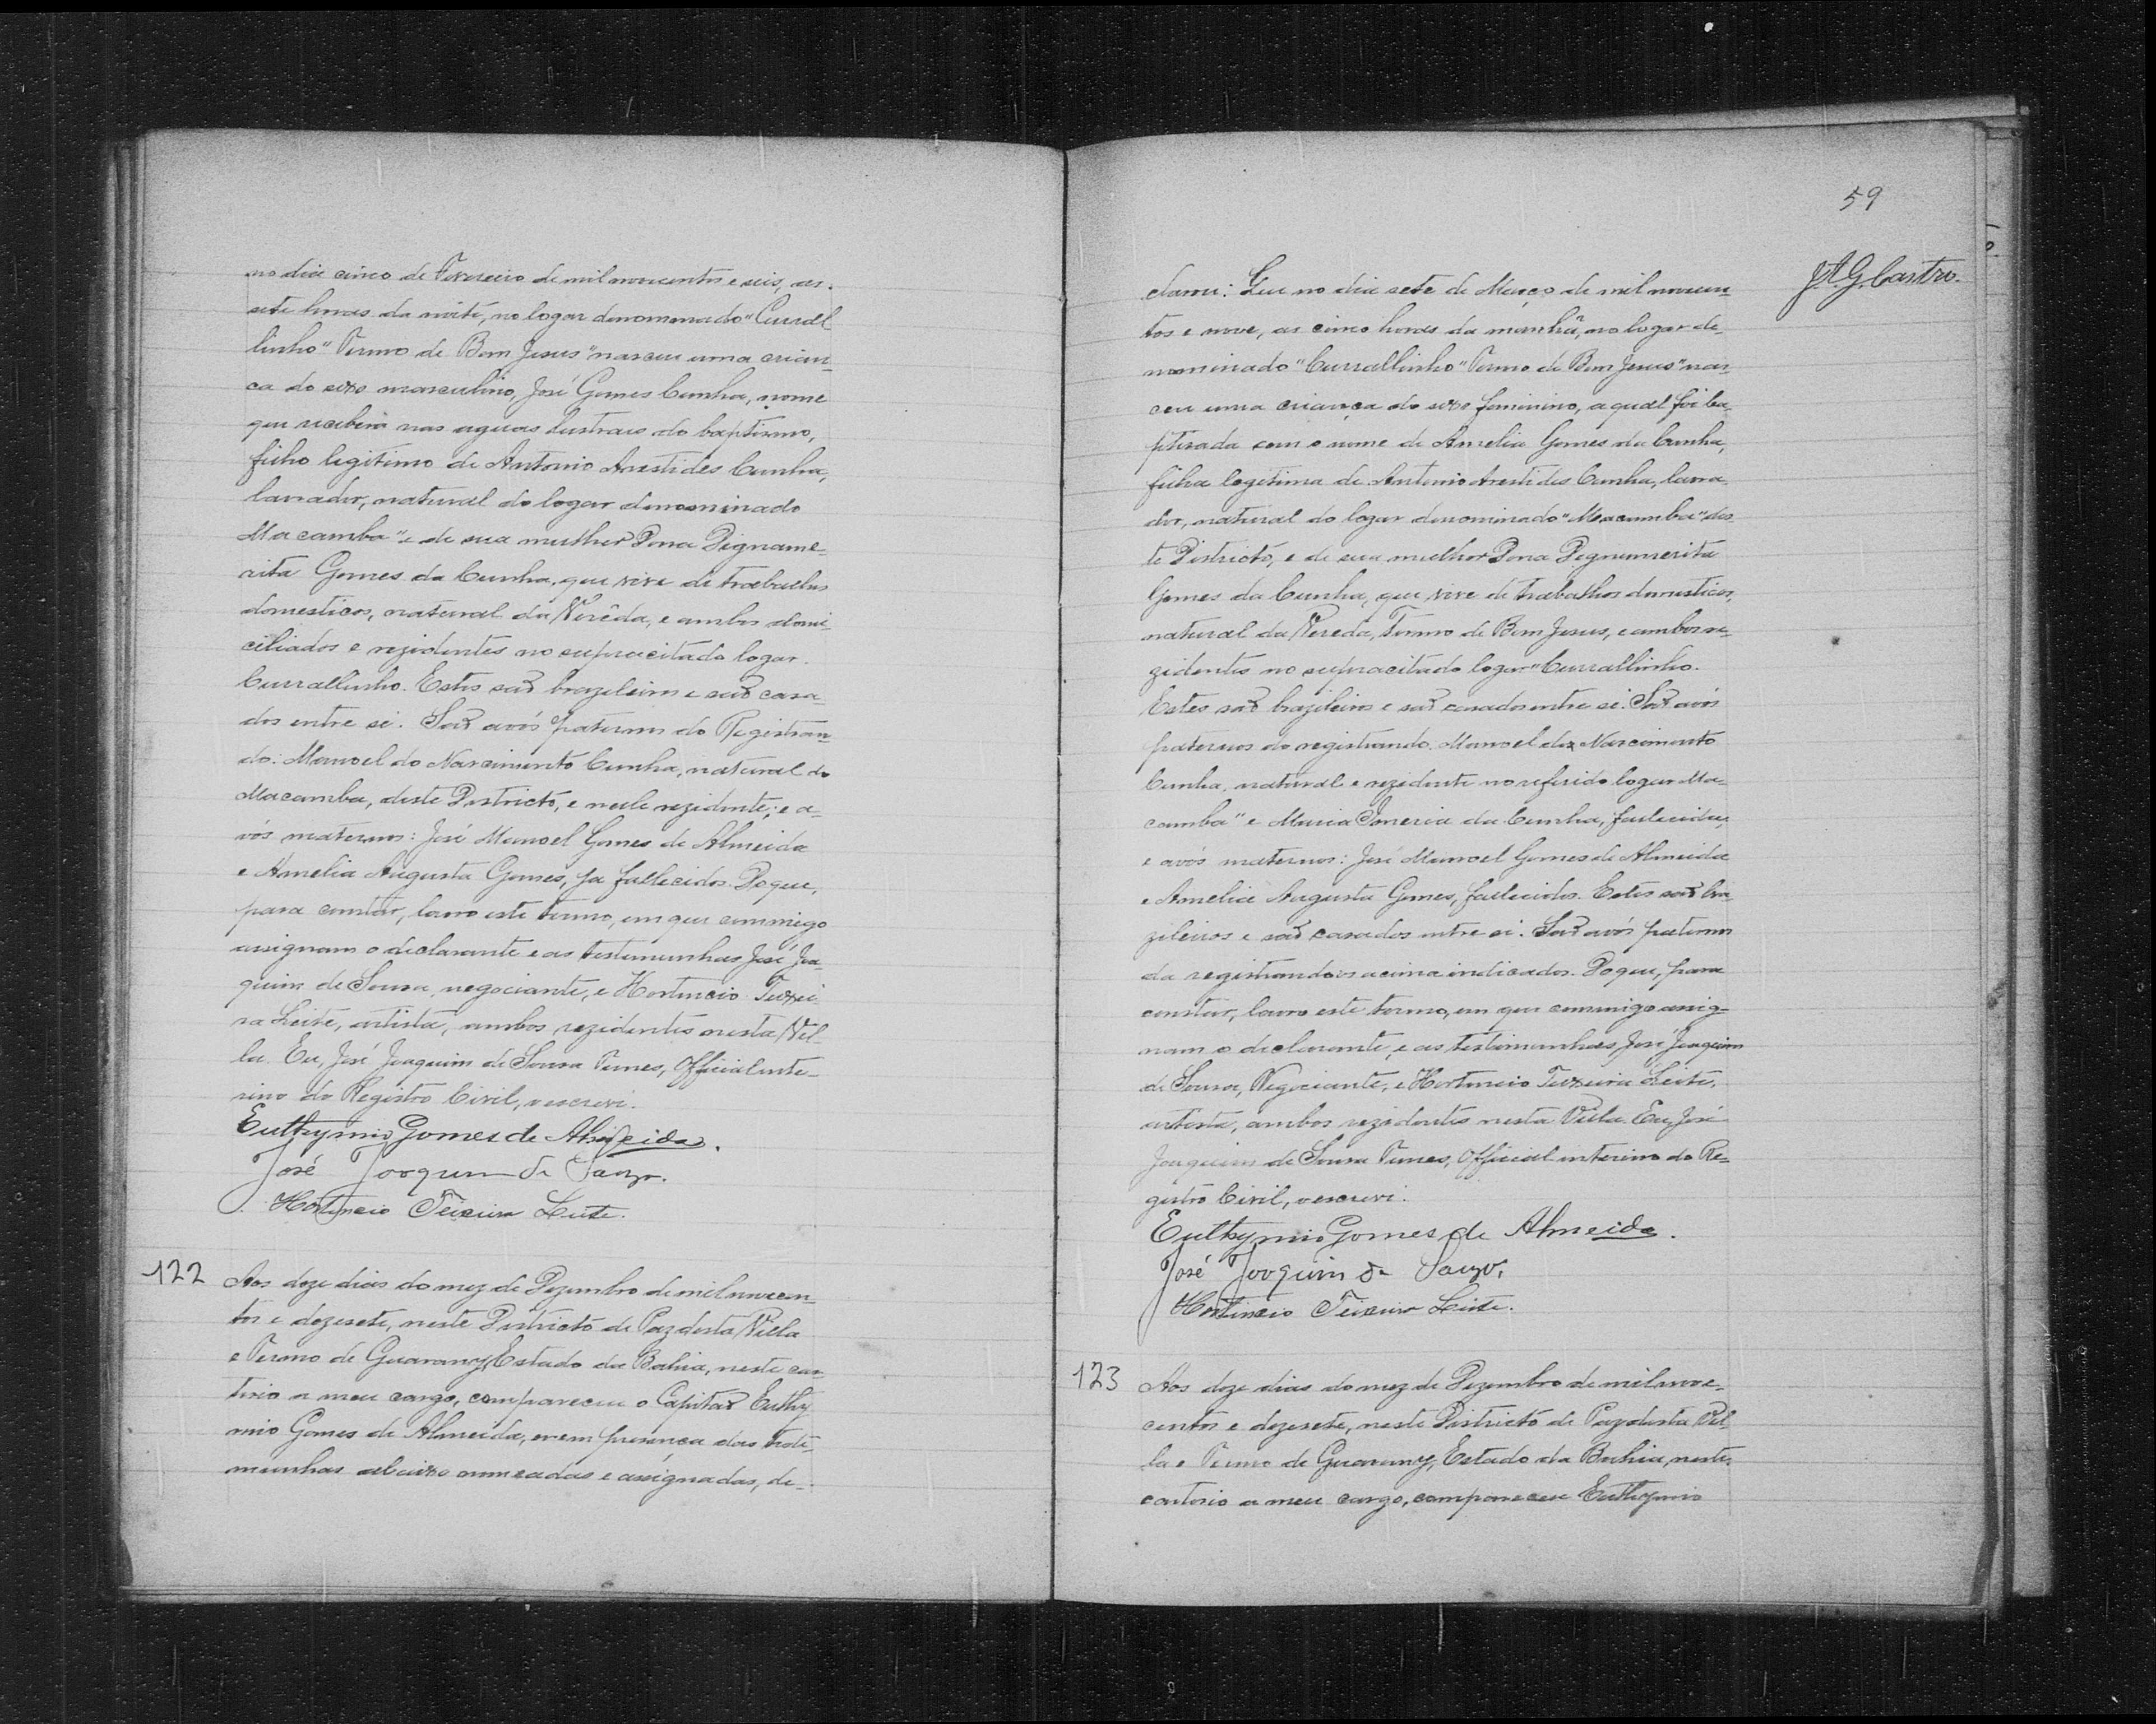 no dia cinco de Fevereiro de mil novecentos e seis, as
sete horas da noite, no logar denominado "Curral-
linho" Termo de Bom Jesus" nasceu uma crian-
ca do sexo masculino, José Gomes Cunha, nome
que recebera nas aguas lustraes do baptismo,
filho legitimo de Antonio Arestides Cunha,
lavrador, natural do logar denominado
Macamba" e de sua mulher Dona Digname-
rita Gomes da Cunha, que vive de trabalhos
domesticos, natural da Verêda, e ambos domi-
ciliados e rezidentes no supracitado logar
Currallinho. Estes saõ brazileiros e saõ casa-
dos entre si. Saõ avós paternos do Registran-
do: Manoel do Nascimento Cunha, natural do
Macamba, deste Districto, e nelle rezidente; e a-
vós maternos: José Manoel Gomes de Almeida
e Amelia Augusta Gomes, ja fallecidos. Do que,
para constar, lavro este termo, em que commigo
assignam o declarante e as testemunhas José Joa-
quim de Sousa, negociante, e Hortencio Teixei-
ra Leite, artista, ambos rezidentes nesta Vil-
la. Eu, José Joaquim de Sousa Tunes, Official inte-
rino do Registro Civil, o escrevi.
Euthymio Gomes de Almeida.
José Joaquim de Souza.
Hortencio Teixeira Leite.
122 Aos doze dias do mez de Dezembro de mil novecen-
tos e dezesete, neste Districto de Paz desta Villa
e Termo de Guarany, Estado da Bahia, neste car-
torio a meu cargo, compareceu o Capitaõ Euthy
mio Gomes de Almeida, e em presença das teste-
munhas abaixo nomeadas e assignadas, de-
59
J.A.G. Castro.
clarou: Que no dia sete de Março de mil novecen-
tos e nove, as cinco horas da manhã, no logar de-
nominado "Currallinho" Termo de Bom Jesus" nas
ceu uma criança do sexo feminino, a qual foi ba-
ptisada com o nome de Amelia Gomes da Cunha,
filha legitima de Antonio Arestides Cunha, lavra-
dor, natural do logar denominado "Macamba" des
te Districto, e de sua mulher Dona Dignamerita
Gomes da Cunha, que vive de trabalhos domesticos,
natural da Vereda, Termo de Bom Jesus, e ambos re-
zidentes no supracitado logar "Currallinho.
Estes saõ brazileiros e saõ casados entre si. Saõ avós
paternos do registrando Manoel do Nascimento
Cunha, natural e rezidente no referido logar Ma-
camba" e Maria da Cunha, fallecida,
e avós maternos: José Manoel Gomes de Almeida
e Amelia Augusta Gomes, fallecidos. Estes saõ bra-
zileiros e saõ casados entre si. Saõ avós paternos
da registranda os acima indicados. Do que, para
constar, lavro este termo, em que commigo assig-
nam o declarante, e as testemunhas, José Joaquim
de Sousa, Negociante, e Hortencio Teixeira Leite,
artista, ambos rezidentes nesta Villa. Eu, José
Joaquim de Sousa Tunes, Official interino do Re-
gistro Civil, o escrevi.
Euthymio Gomes de Almeida.
José Joaquim de Souza,
Hortencio Teixeira Leite.
123 Aos doze dias do mez de Dezembro de mil nove-
centos e dezesete, neste Districto de Paz desta Vil-
la e Termo de Guarany, Estado da Bahia, neste
cartorio a meu cargo, compareceu Euthymio